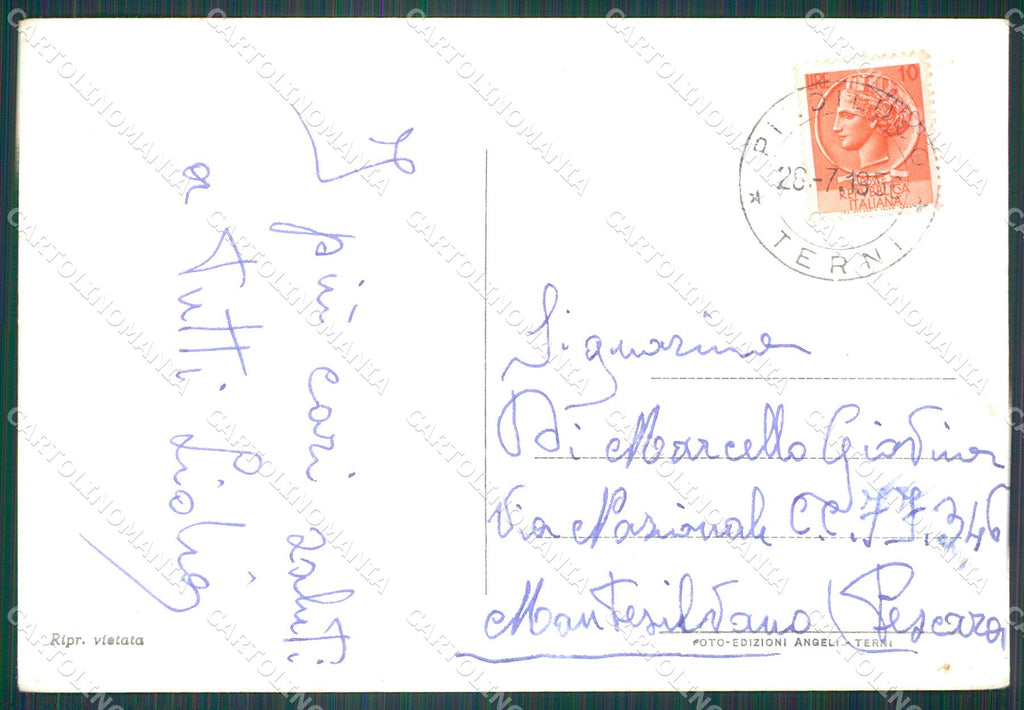 I
più cari saluti
a tutti
Ripr. vietata
LIRE 10
REPVBBLICA
ITALIANA
TERNI
Signorina
Di Marcello Giovina
Via Nazionale C.C. 77.346
Montesilvano (Pescara
FOTO-EDIZIONI ANGELI - TERNI
CARTOLINOMANIA